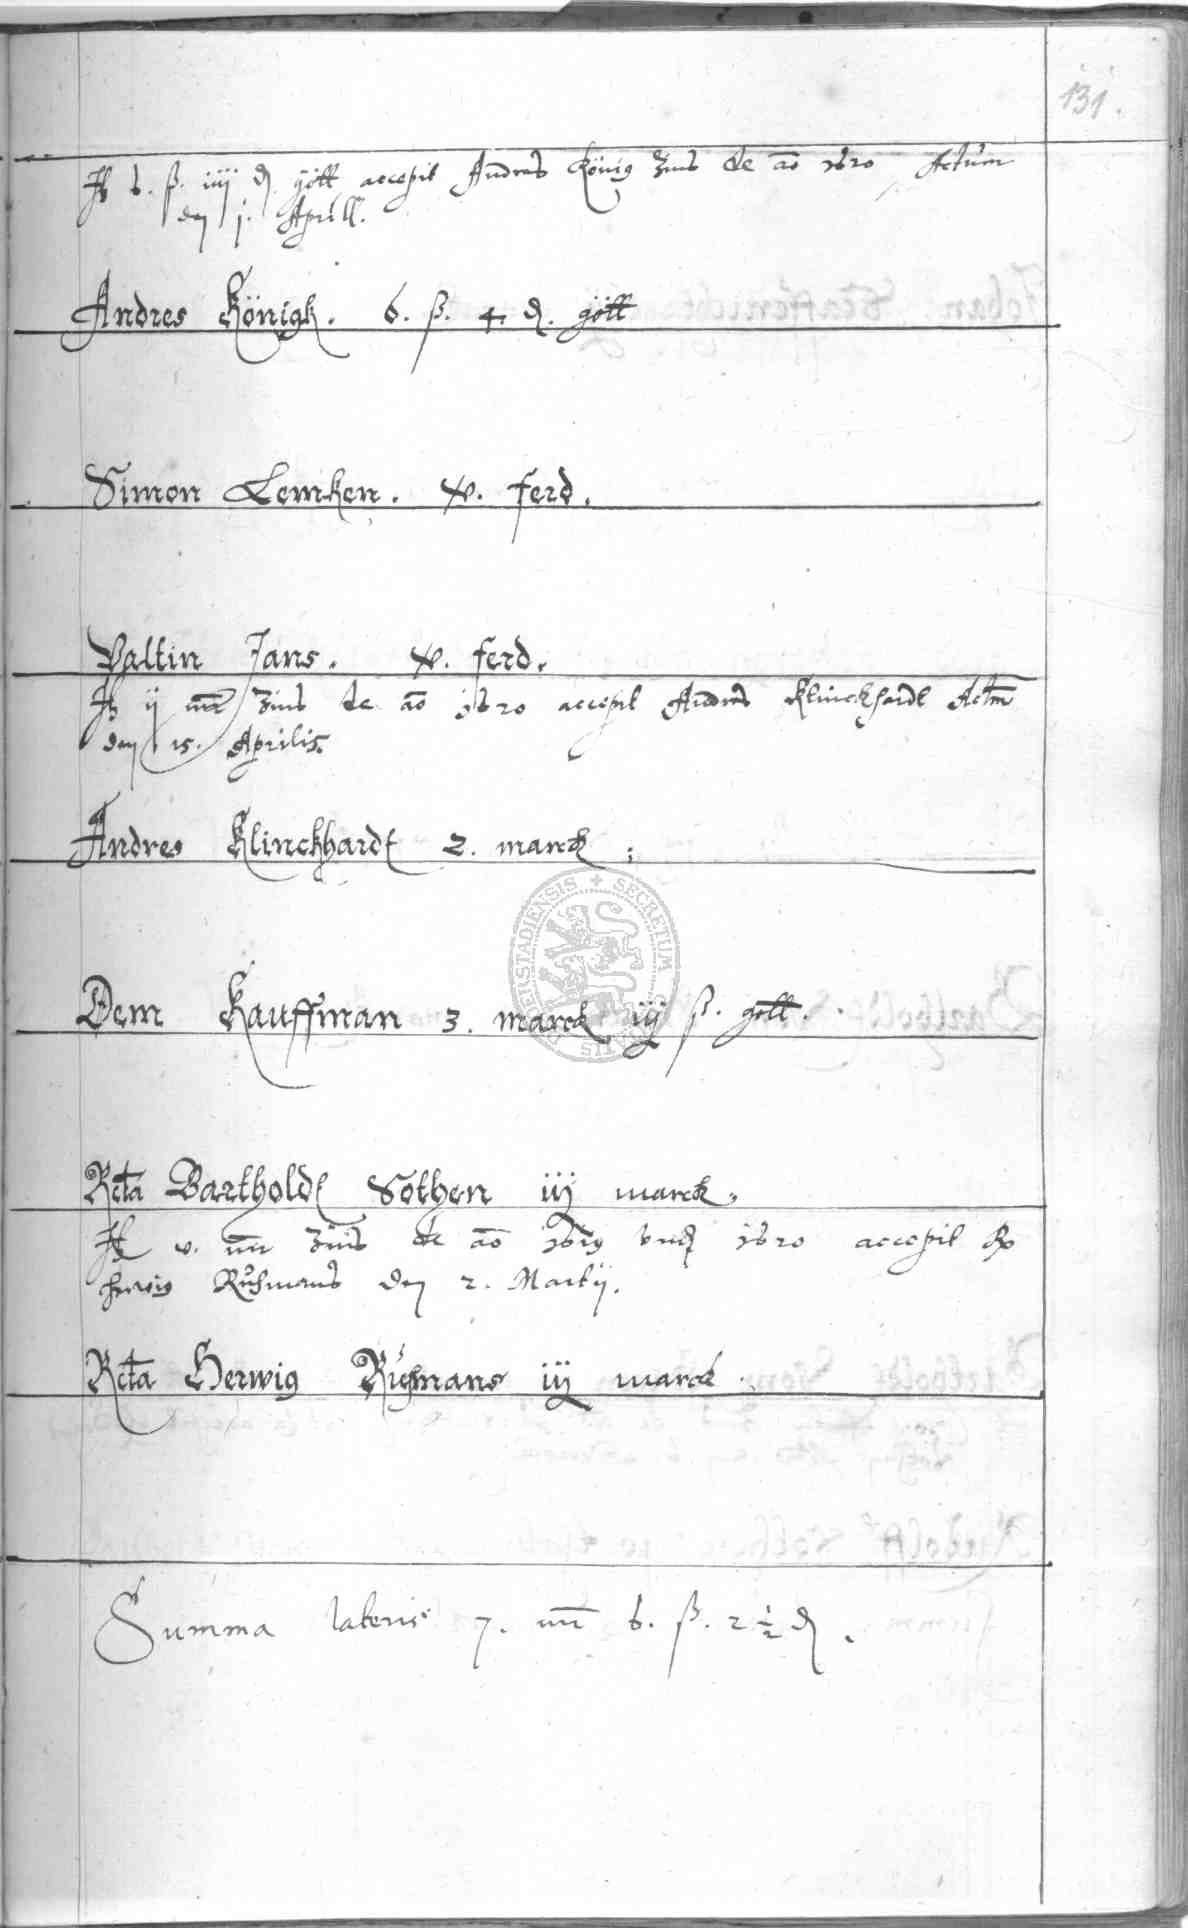 131.
It 6. ß. iiij ₰. gött accepit Andreas König Zins de ao 1620 Actum
den j. Aprill.
Andres Königk. 6. ß. 4 ₰. gött
Simon Lemken. v. ferd.
Valtin Jans. v. ferd.
It ij mr Zins de ao 1620 accepit Andreas Klinckhardt Actm
den 15. Aprilis
Andres Klinckhardt 2. marck;
Dem Kauffman 3. marck iij ß. gött.
Rcta Bartholdt Sothen iij marck,
It v. mr Zins de ao 1619 vnd 1620 accepit
Herwig Rühmans den 2. Martij.
Rcta Herwig Rühmans iij marck.
Summa lateris 7. mr 6. ß. 2 1/2 ₰.
SECRETUM